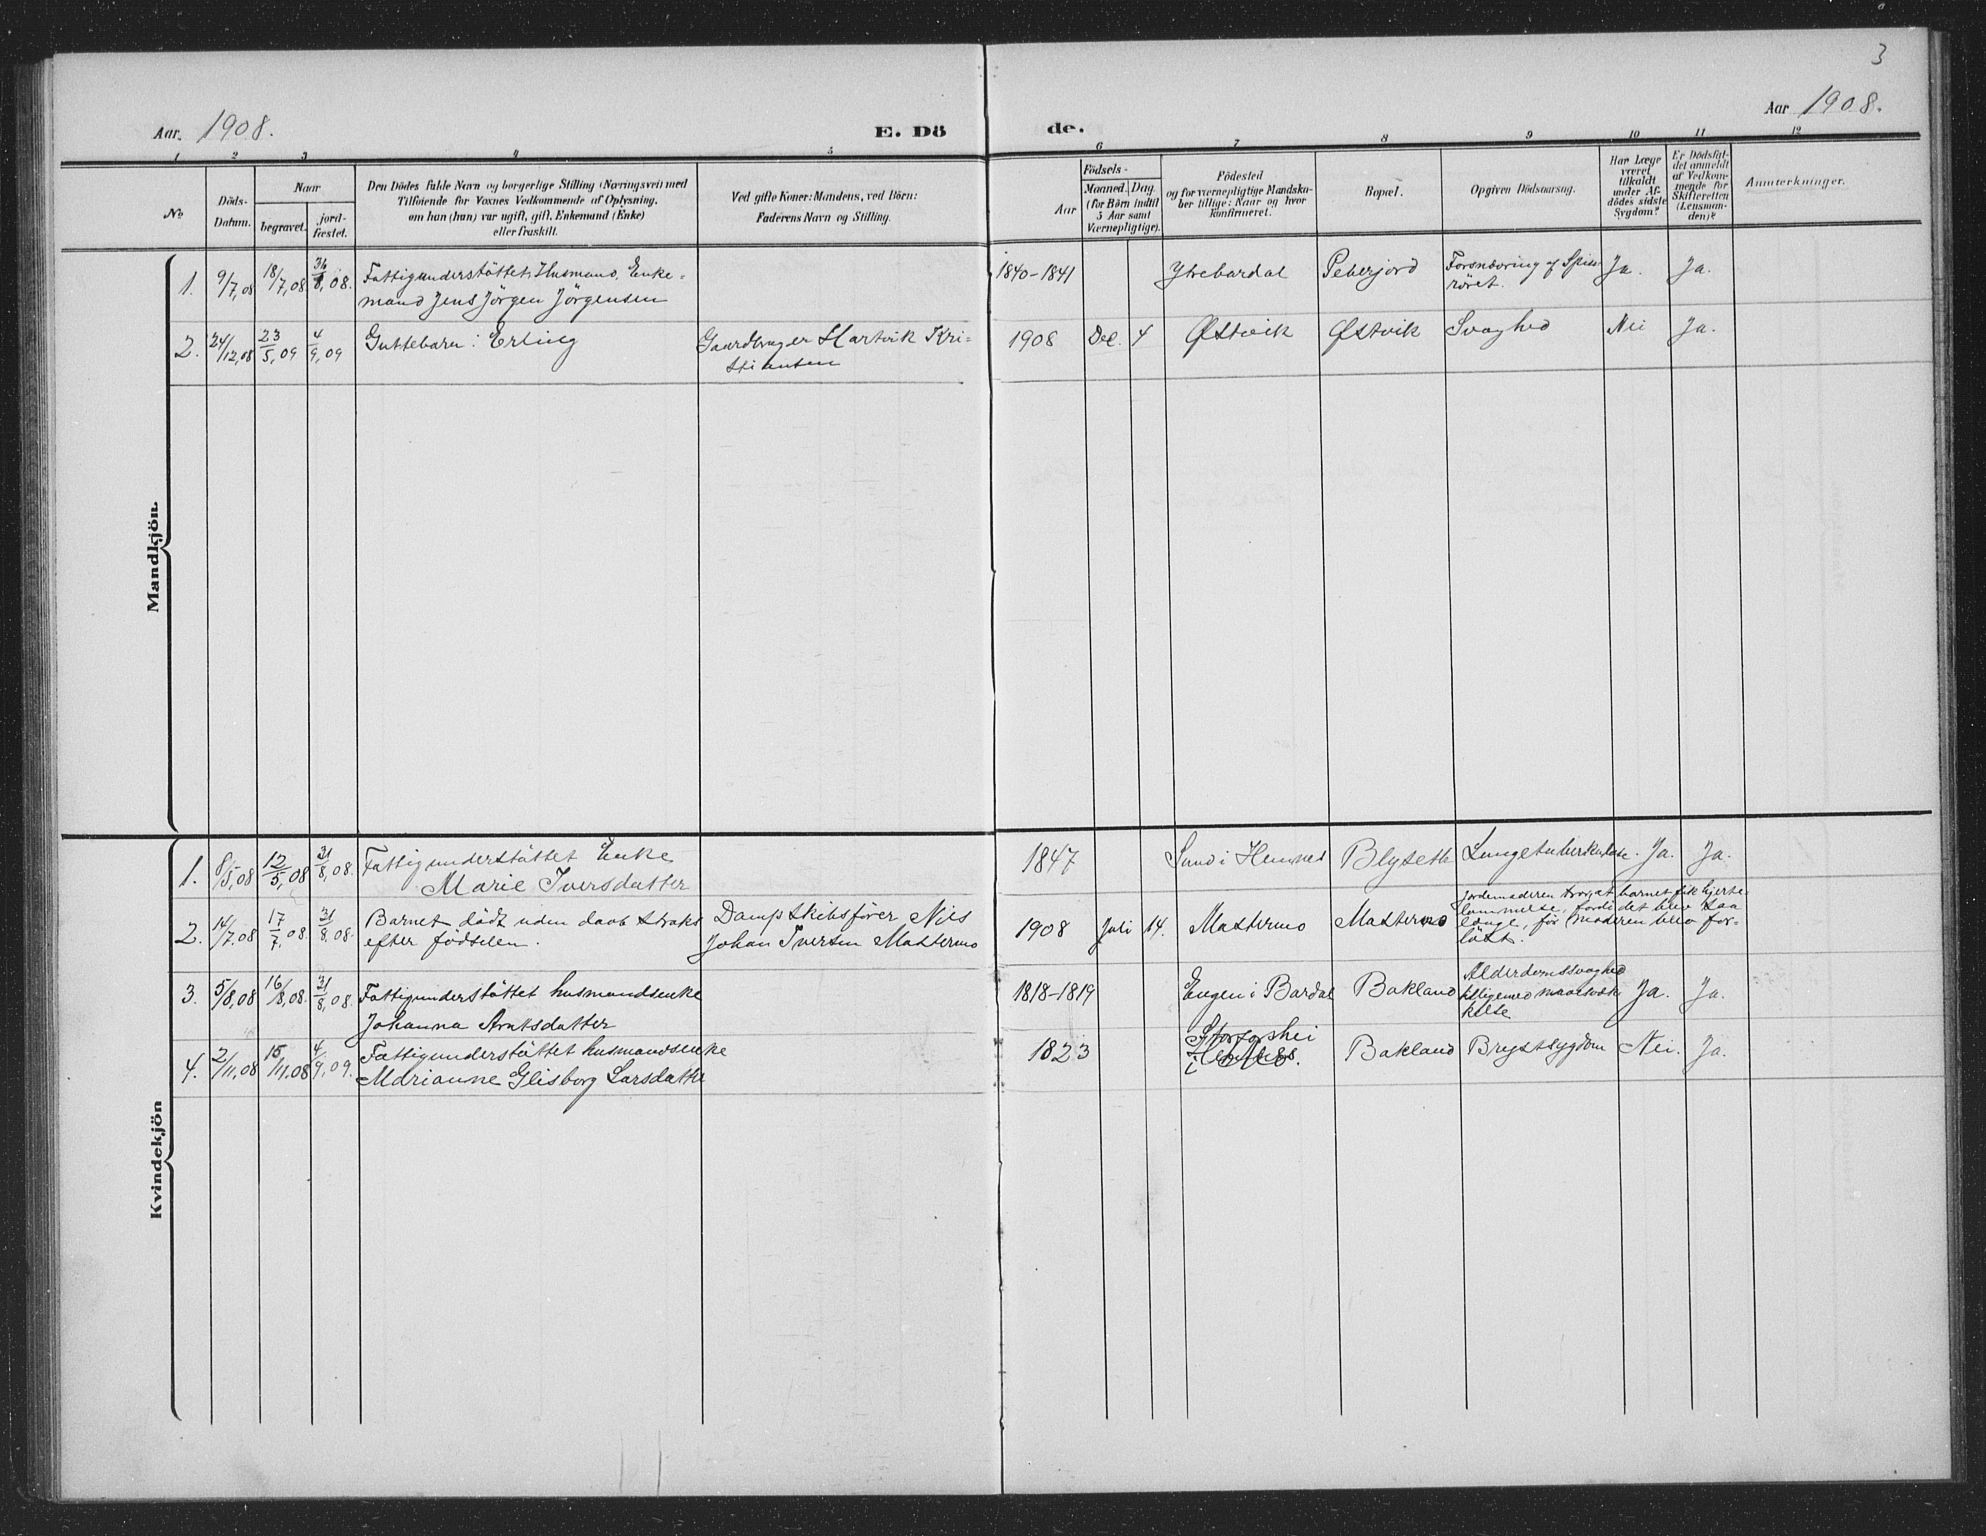 3
Aar. 1908.
E. Dö
de.
Aar 1908.
1 2 3 4 5
6 7 8 9 10 11 12
No
Döds-
Datum.
Naar
begravet.
jord-
fæstet.
Den Dödes fulde Navn og borgerlige Stilling (Næringsvei) med
Tilföiende for Voxnes Vedkommende af Oplysning,
om hun (han) var ugift, gift, Enkemand (Enke)
eller fraskilt.
Ved gifte Koner: Mandens, ved Börn:
Faderens Navn og Stilling.
Födsels-
Aar
Maaned. Dag.
(for Börn indtil
5 Aar samt
Værnepligtige).
Födested
og for værnepligtige Mandska-
ber tillige: Naar og hvor
konfirmeret.
Bopæl.
Opgiven Dödsaarsag.
Har Læge
været
tilkaldt
under Af-
dödes sidste
Sygdom?
Er Dödsfal-
det anmeldt
af Vedkom-
mende for
Skifteretten
(Lensman-
den)?
Anmerkninger.
Mandkjön.
1. 9/7,08 18/7,08 31/8,08. Fattigunderstöttet, Husmand, Enke-
mand Jens Jörgen Jörgensen
1840-1841 Ytrebardal Peberjord Forsnævring af Spise-
röret. Ja. Ja.
2. 24/12,08 23/5,09 4/9,09 Guttebarn: Erling Gaardbruger Hartvik Kri-
stiansen
1908 Dec. 4 Østvik Østvik Svaghed Nei Ja.
Kvindekjön
1. 8/5,08 12/5,08 31/8,08. Fattigunderstöttet Enke
Marie Iversdatter
1847 Sund i Hemnes Blyseth Lungetuberkulose. Ja. Ja.
2. 14/7,08 17/7,08. 31/8,08. Barnet dödt uden daab straks
efter födselen. Dampskibsförer Nils
Johan Iversen Mastermo
1908 Juli 14. Mastermo Mastermo Jordemoderen tror at barnet fik hjerte-
lammelse, fordi det blev saa
længe, för moderen blev for-
löst.
3. 5/8,08 16/8,08. 31/8,08. Fattigunderstöttet husmandsenke
Johanna Arntsdatter
1818-1819 Engen i Bardal Bakland Alderdomssvaghed
tilligemed
Ja. Ja.
4. 2/11,08 15/11,08 4/9,09. Fattigunderstöttet husmandsenke
Marianne Elisborg Larsdatter
1823
i Bakland Brystsygdom Nei. Ja.